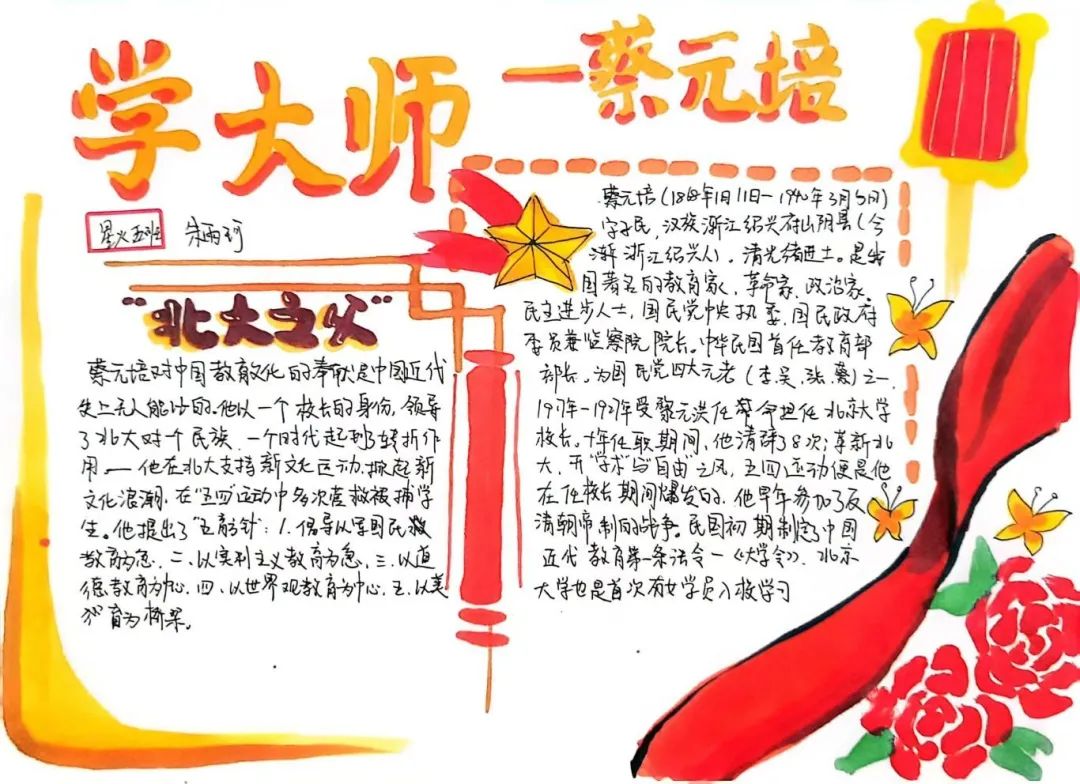 学大师
一蔡元培
星火五班 朱雨珂
"北大之父"
蔡元培对中国教育文化的奉献是中国近代
史上无人能比的。他以一个校长的身份,领导
了北大对一个民族、一个时代起到了转折作
用——他在北大支持新文化运动,掀起新
文化浪潮,在"五四"运动中多次营救被捕学
生。他提出了"五育方针":1.倡导以军国民
教育为急.二、以实利主义教育为急.三、以道
德教育为中心.四、以世界观教育为中心.五.以美
育为桥梁。
蔡元培(1868年1月11日—1940年3月5日)
字孑民,汉族浙江绍兴府山阴县(今
浙江绍兴人),清光绪进士。是我
国著名的教育家、革命家、政治家。
民主进步人士,国民党中央执委、国民政府
委员兼监察院院长。中华民国首任教育部
部长,为国民党四大元老(李、吴、张、蔡)之一.
1917年—1927年受黎元洪任命担任北京大学
校长。十年任职期间,他清辞了8次;革新北
大、开"学术"与"自由"之风,五四运动便是他
在任校长期间爆发的.他早年参加了反
清朝帝制的战争。民国初期制定了中国
近代教育第一条法令—《大学令》.北京
大学也是首次有女学员入校学习